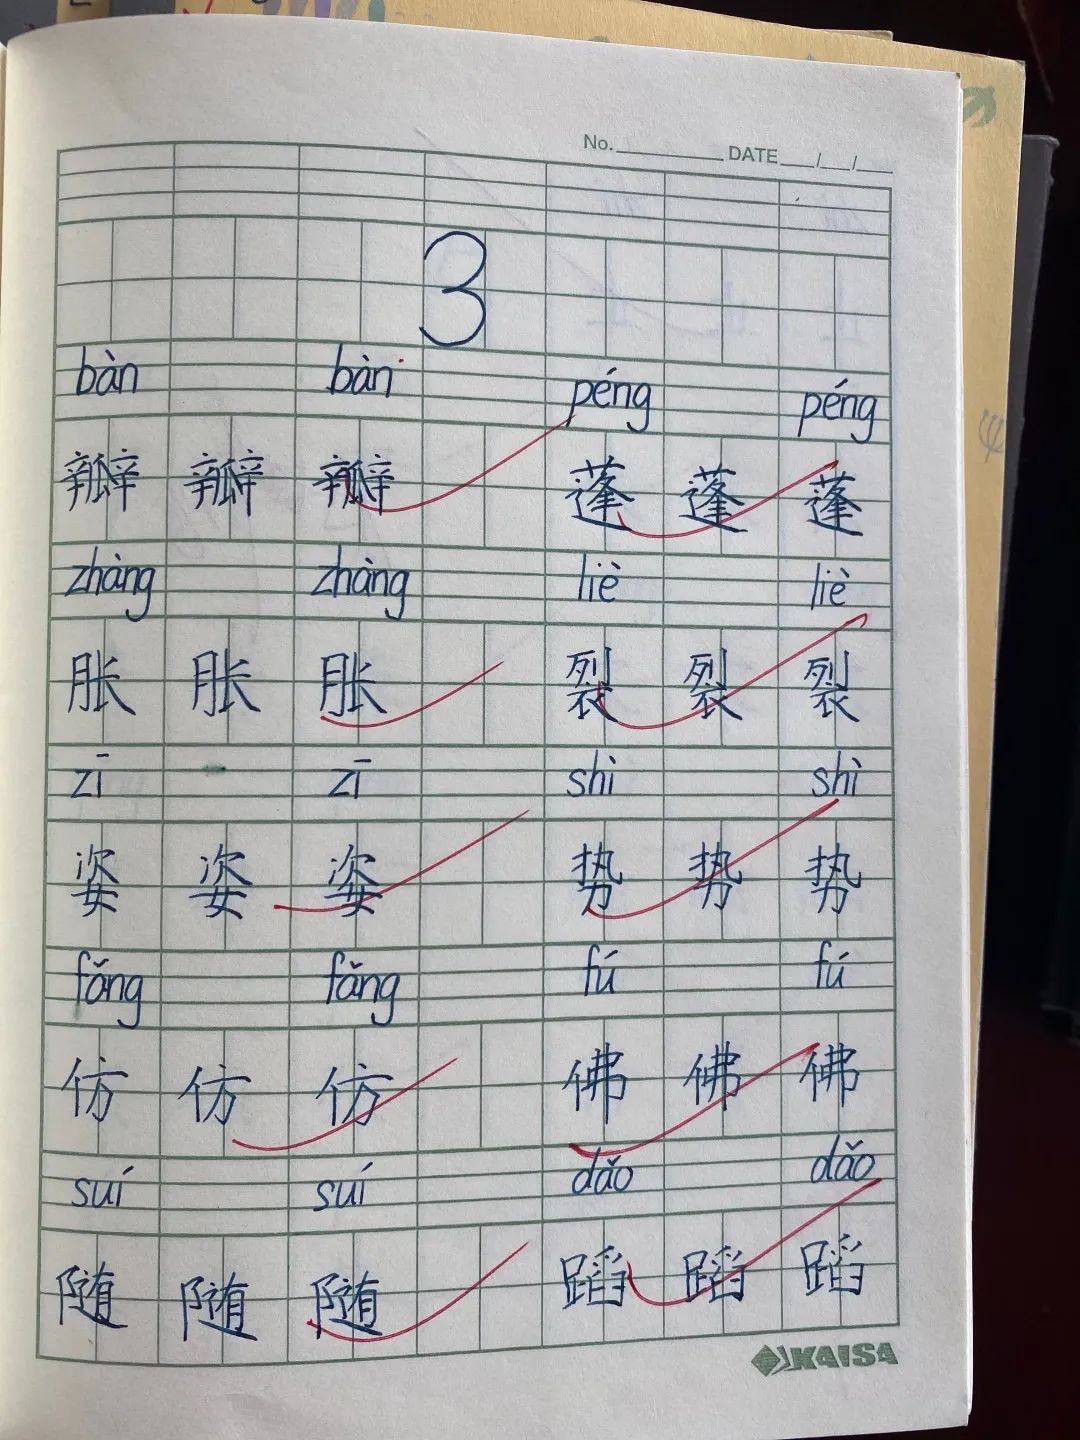 No. DATE / /
3
bàn bàn péng péng
瓣 瓣 瓣 蓬 蓬 蓬
zhàng zhàng liè liè
胀 胀 胀 裂 裂 裂
zī zī shì shì
姿 姿 姿 势 势 势
fǎng fǎng fú fú
仿 仿 仿 佛 佛 佛
suí suí dǎo dǎo
随 随 随 蹈 蹈 蹈
KAISA